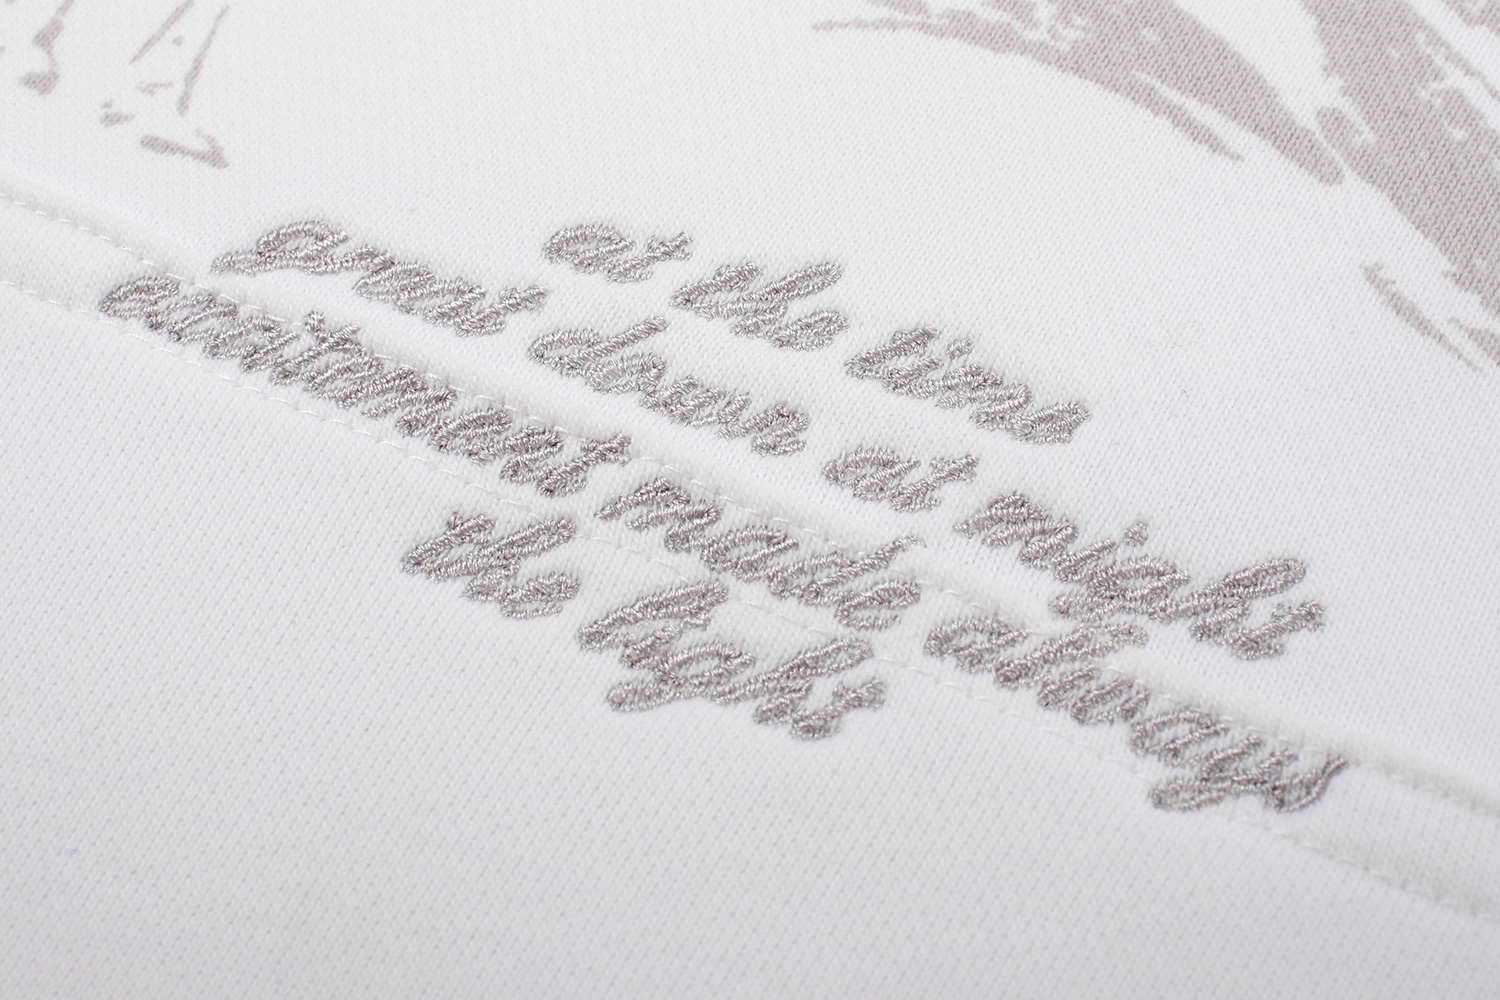 at the time
great down at night
excitement made always
the light